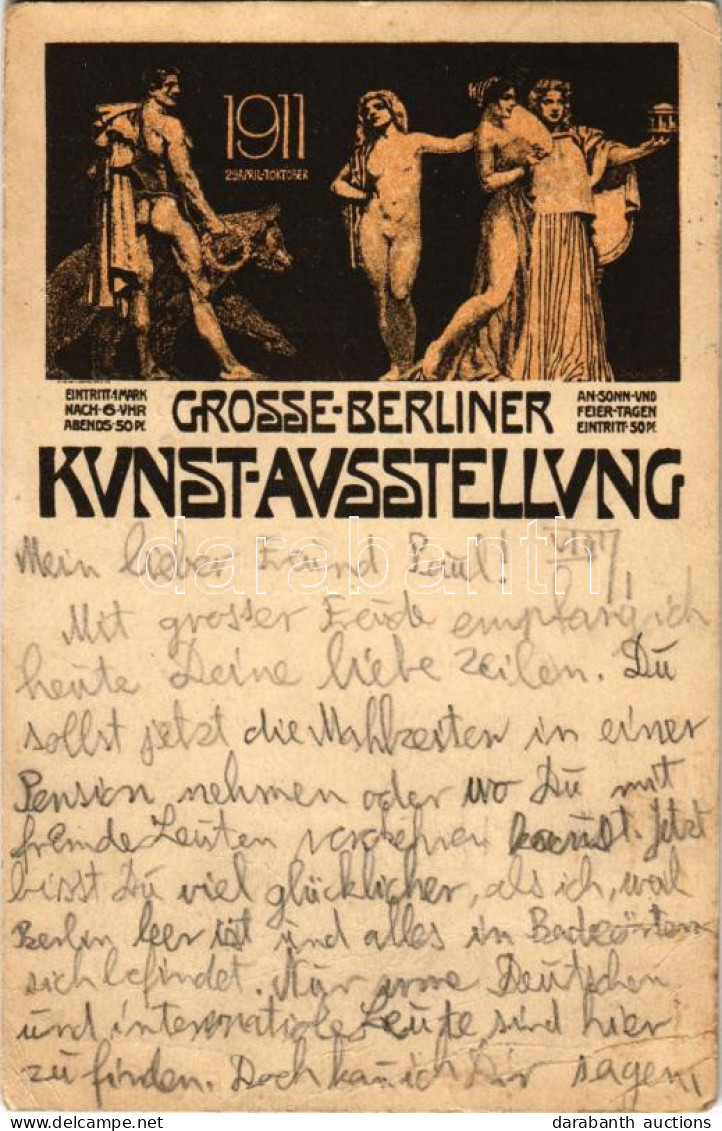 1911
29 APRIL-1 OKTOBER
EINTRITT-1 MARK
NACH-6-VHR
ABENDS-50 Pf.
GROSSE-BERLINER
AN-SONN-VND
FEIER-TAGEN
EINTRITT-50 Pf.
KVNST-AVSSTELLVNG
Mein lieber Freund Paul!
Mit grosser Freude empfang ich
heute Deine liebe Zeilen. Du
sollst jetzt die Mahlzeiten in einer
Pension nehmen oder wo Du mit
fremde Leuten verkehren kannst. Jetzt
bisst Du viel glücklicher, als ich, weil
Berlin leer ist und alles in Badeörten
sich befindet. Nur Deutschen
und internationale Leute sind hier
zu finden. Doch kan ich Dir sagen,
darabanth
www.delcampe.net
darabanth auctions